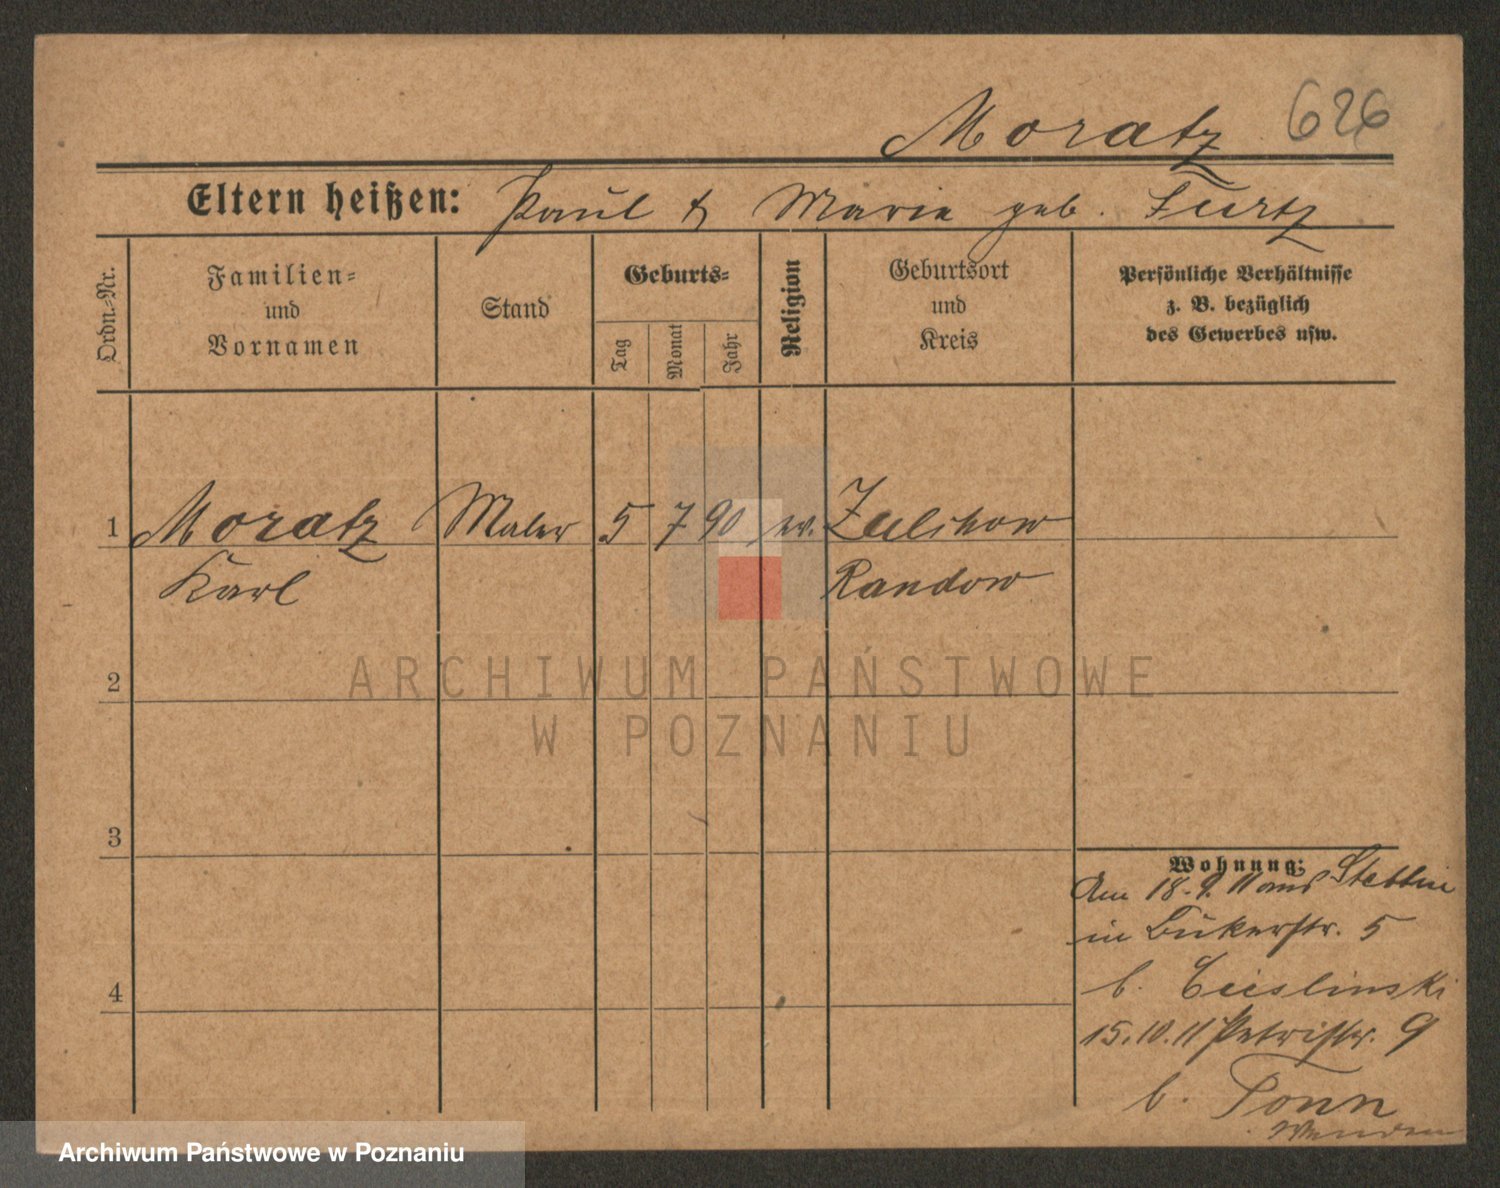 Moratz 626
Eltern heißen: Paul & Marie geb.
Ordn.-Nr.
Familien=
und
Vornamen
Stand
Geburts=
Tag
Monat
Jahr
Religion
Geburtsort
und
Kreis
Persönliche Verhältnisse
z. B. bezüglich
des Gewerbes usw.
1 Moratz Maler 5 7 90 ev. Züllchow
Karl Randow
2
ARCHIWUM PAŃSTWOWE
W POZNANIU
3
Wohnung:
Am 18.9.11 aus Stettin
in Bükerstr. 5
b. Cieslinski
15.10.11 Petristr. 9
4
b. Tonn
Archiwum Państwowe w Poznaniu